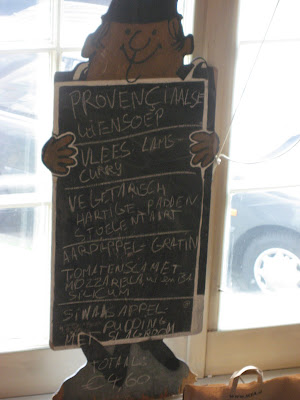 PROVENÇIAALSE
VIENSOEP
VLEES LAMS-
CURRY
VEGETARISCH
HARTIGE PADDEN
STOELENTAART
AARDAPPEL-GRATIN
TOMATENSLA MET
MOZZARELLA
SILICUM
SINAASAPPEL
PUDDING
MET SLAGROOM
TOTAAL:
€4,60